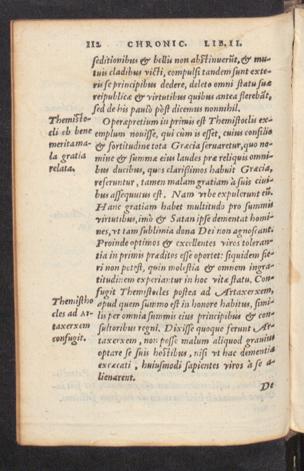 112 CHRONIC. LIB. II.
seditionibus & bellis non abstinuerũt, & mu-
tuis cladibus victi, compulsi tandem sunt exte-
ris se principibus dedere, deleto omni statu suæ
reipublicæ & virtutibus quibus antea florebãt,
sed de his paulò pòst dicemus nonnihil.
Themisto-
cli ob bene
merita ma-
la gratia
relata.
Operæpretium in primis est Themistoclis ex-
emplum nouisse, qui cùm is esset, cuius consilio
& fortitudine tota Græcia seruaretur, quo no-
mine & summæ eius laudes præ reliquis omni-
bus ducibus, quos clarissimos habuit Græcia,
referuntur, tamen malam gratiam à suis ciui-
bus assequutus est. Nam vrbe expulerunt eũ.
Hanc gratiam habet multitudo pro summis
virtutibus, imò & Satan ipse dementat homi-
nes, vt tam sublimia dona Dei non agnoscant.
Proinde optimos & excellentes viros toleran-
tia in primis præditos esse oportet: siquidem fie-
ri non potest, quin molestiã & omnem ingra-
titudinem experiantur in hoc vitæ statu. Con-
fugit Themistocles postea ad Artaxerxem,
Themisto
cles ad Ar-
taxerxem
confugit.
apud quem summo est in honore habitus, simi-
lis per omnia summis eius principibus & con-
sultoribus regni. Dixisse quoque ferunt Ar-
taxerxem, non posse malum aliquod grauius
optare se suis hostibus, nisi vt hac dementia
excæcati, huiusmodi sapientes viros à se a-
lienarent.
De